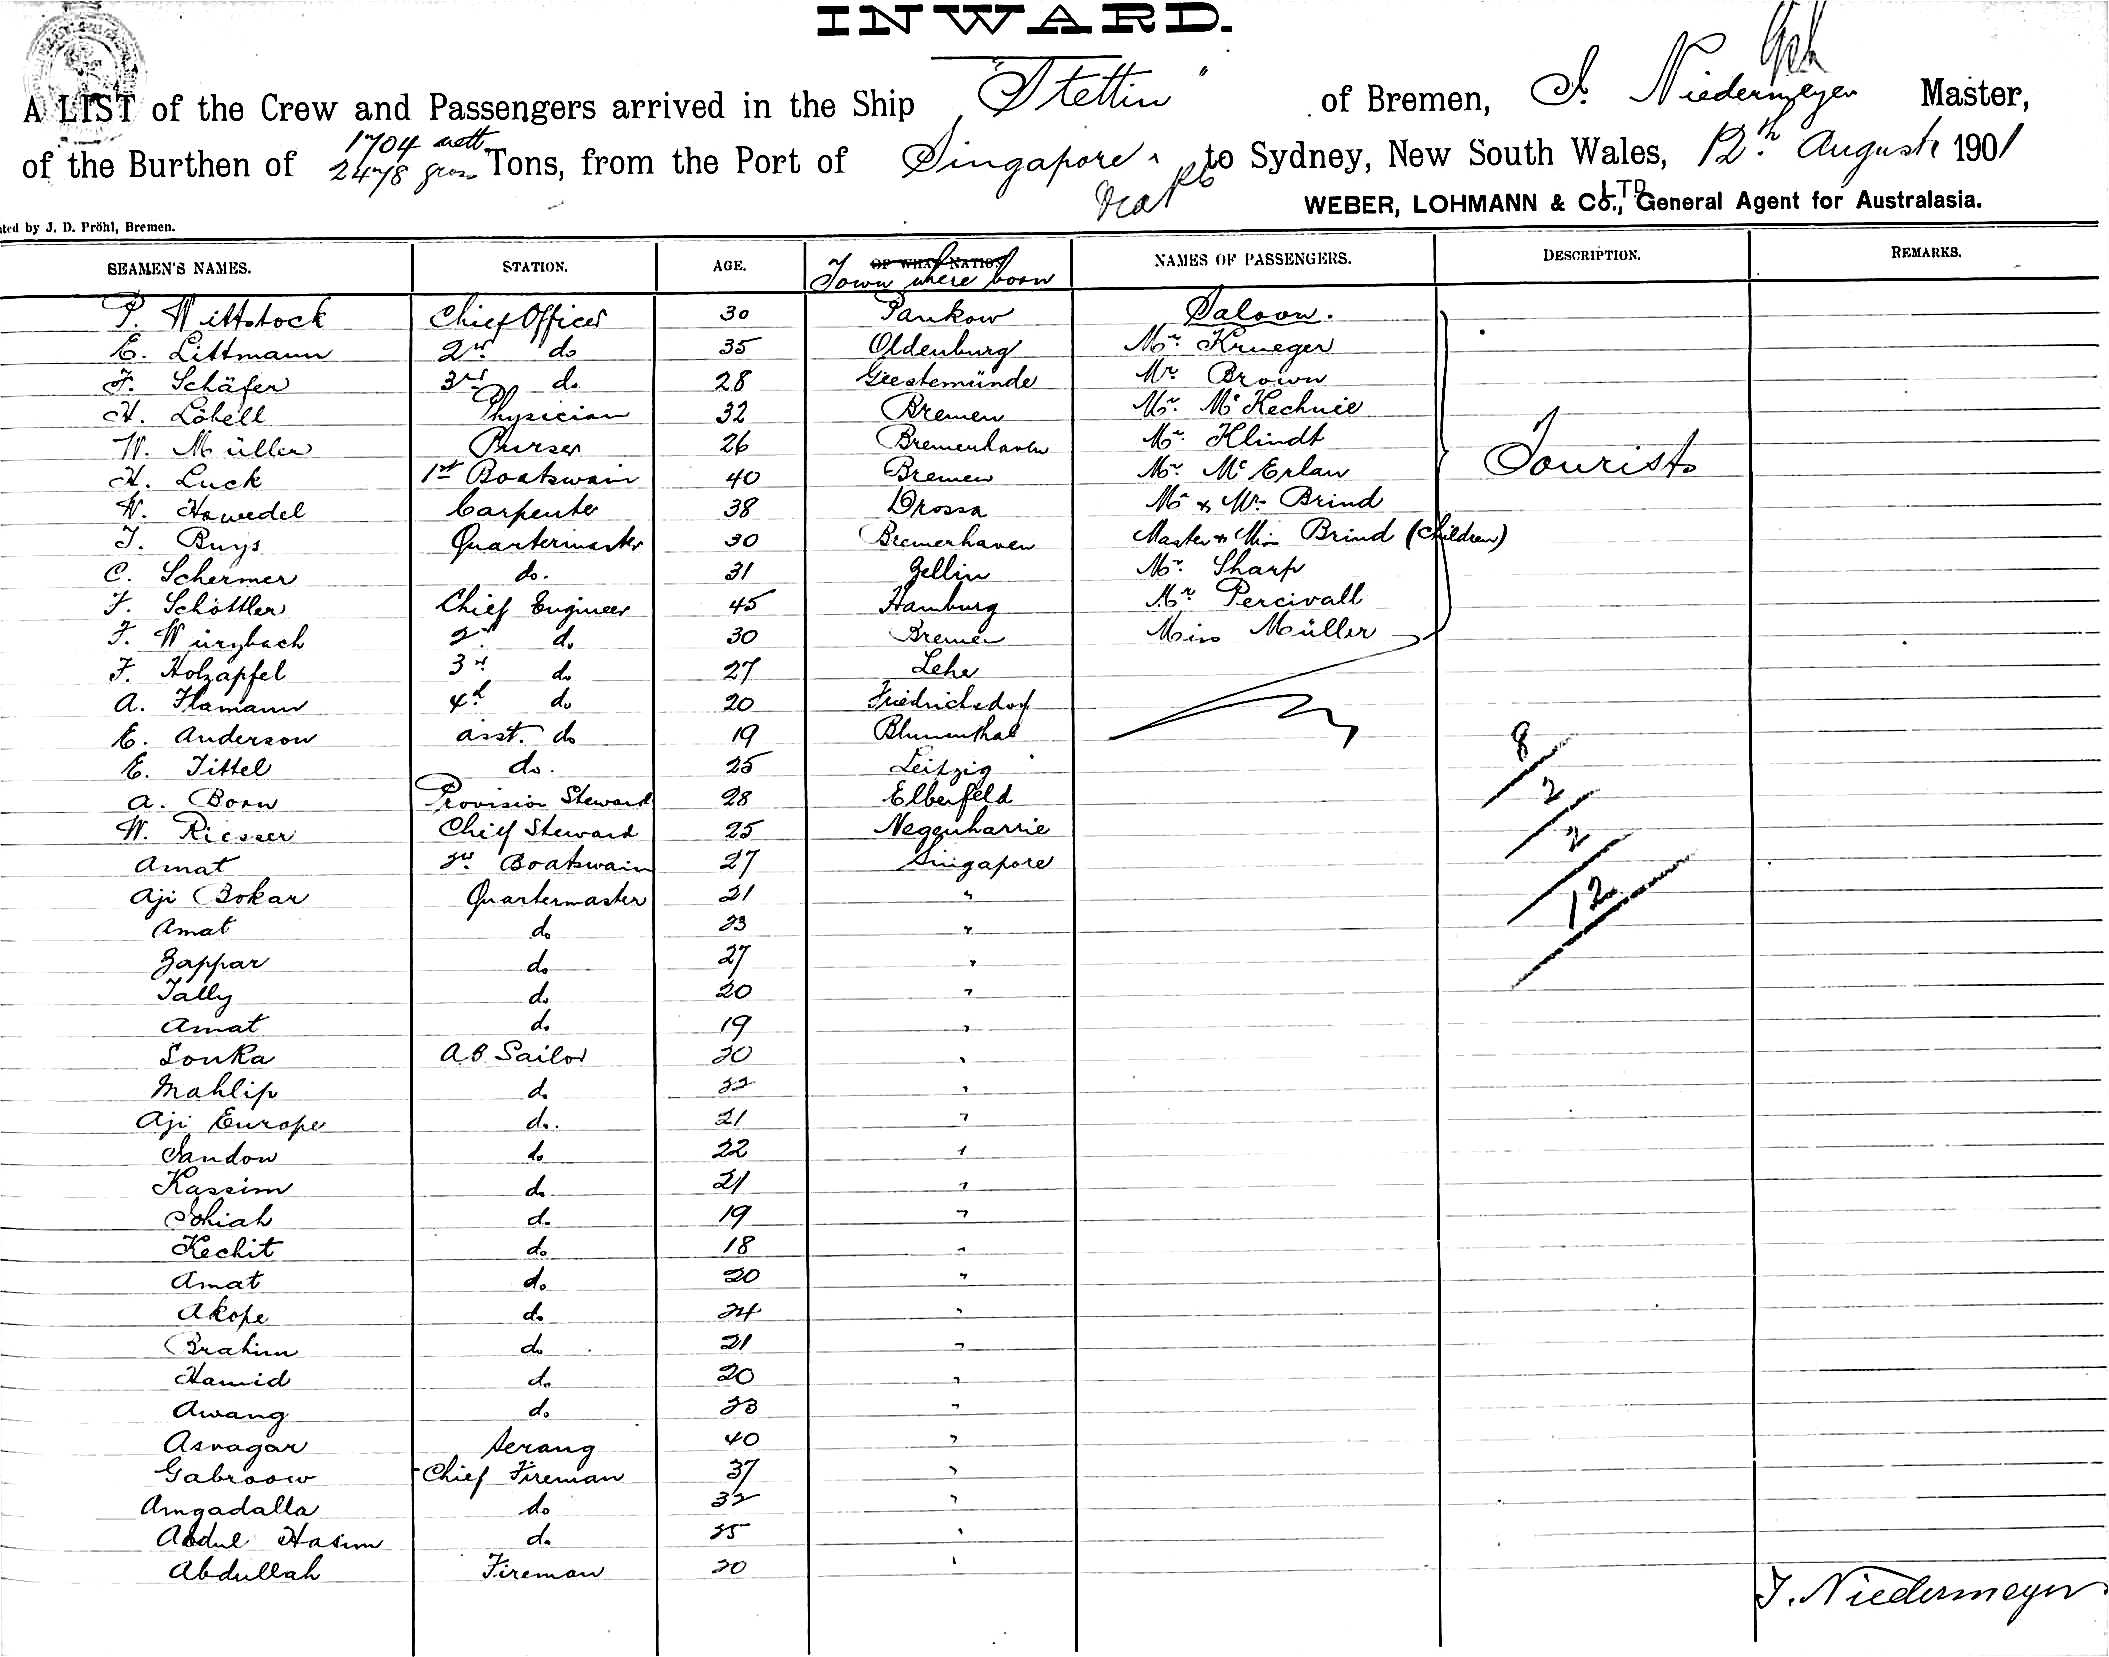 INWARD.
A LIST of the Crew and Passengers arrived in the Ship "Stettin" of Bremen, Niedermeyer Master,
of the Burthen of 1704 nett 2478 gross Tons, from the Port of Singapore to Sydney, New South Wales, 12th August 1901
WEBER, LOHMANN & Co., LTD General Agent for Australasia.
ted by J. D. Pröhl, Bremen.
SEAMEN'S NAMES. STATION. AGE. OF WHAT NATION Town where born NAMES OF PASSENGERS. DESCRIPTION. REMARKS.
P. Wittstock Chief Officer 30 Pankow Saloon.
E. Littmann 2nd do 35 Oldenburg Mr. Krueger
F. Schäfer 3rd do 28 Geestemünde Mr Brown
H. Löbell Physician 32 Bremen Mr. McKechnie
W. Müller Purser 26 Bremerhaven Mr. Klindt
H. Luck 1st Boatswain 40 Bremen Mr. McErlan Tourists
W. Hawedel Carpenter 38 Drossa Mr & Mrs Brind
J. Buys Quartermaster 30 Bremerhaven Master & Miss Brind (Children)
C. Schermer do. 31 Zellin Mr. Sharp
F. Schöttler Chief Engineer 45 Hamburg Mr Percivall
F. Würzbach 2nd do 30 Bremen Miss Müller
F. Holzapfel 3rd do 27 Lehe
A. Flamann 4th do 20 Friedrichsdorf
E. Anderson asst. do 19 Blumenthal 8
E. Tittel do. 25 Leipzig
A. Born Provision Steward 28 Elberfeld 2
W. Riesser Chief Steward 25 Negenharrie 2
Amat 2nd Boatswain 27 Singapore
Aji Bokar Quartermaster 21 " 12
Amat do 23 "
Zappar do 27 "
Tally do 20 "
Amat do 19 "
Sonka A.B Sailor 30 "
Mahlip do 22 "
Aji Europe do. 21 "
Sandow do 22 "
Kassim do 21 "
Sohiah do 19 "
Kechit do 18 "
Amat do 20 "
Akope do 24 "
Brahim do 21 "
Hamid do 20 "
Awang do 23 "
Asvagar Serang 40 "
Gabroow Chief Fireman 37 "
Amgadalla do 32 "
Abdul Hasim do 35 "
Abdullah Fireman 30 "
J. Niedermeyer